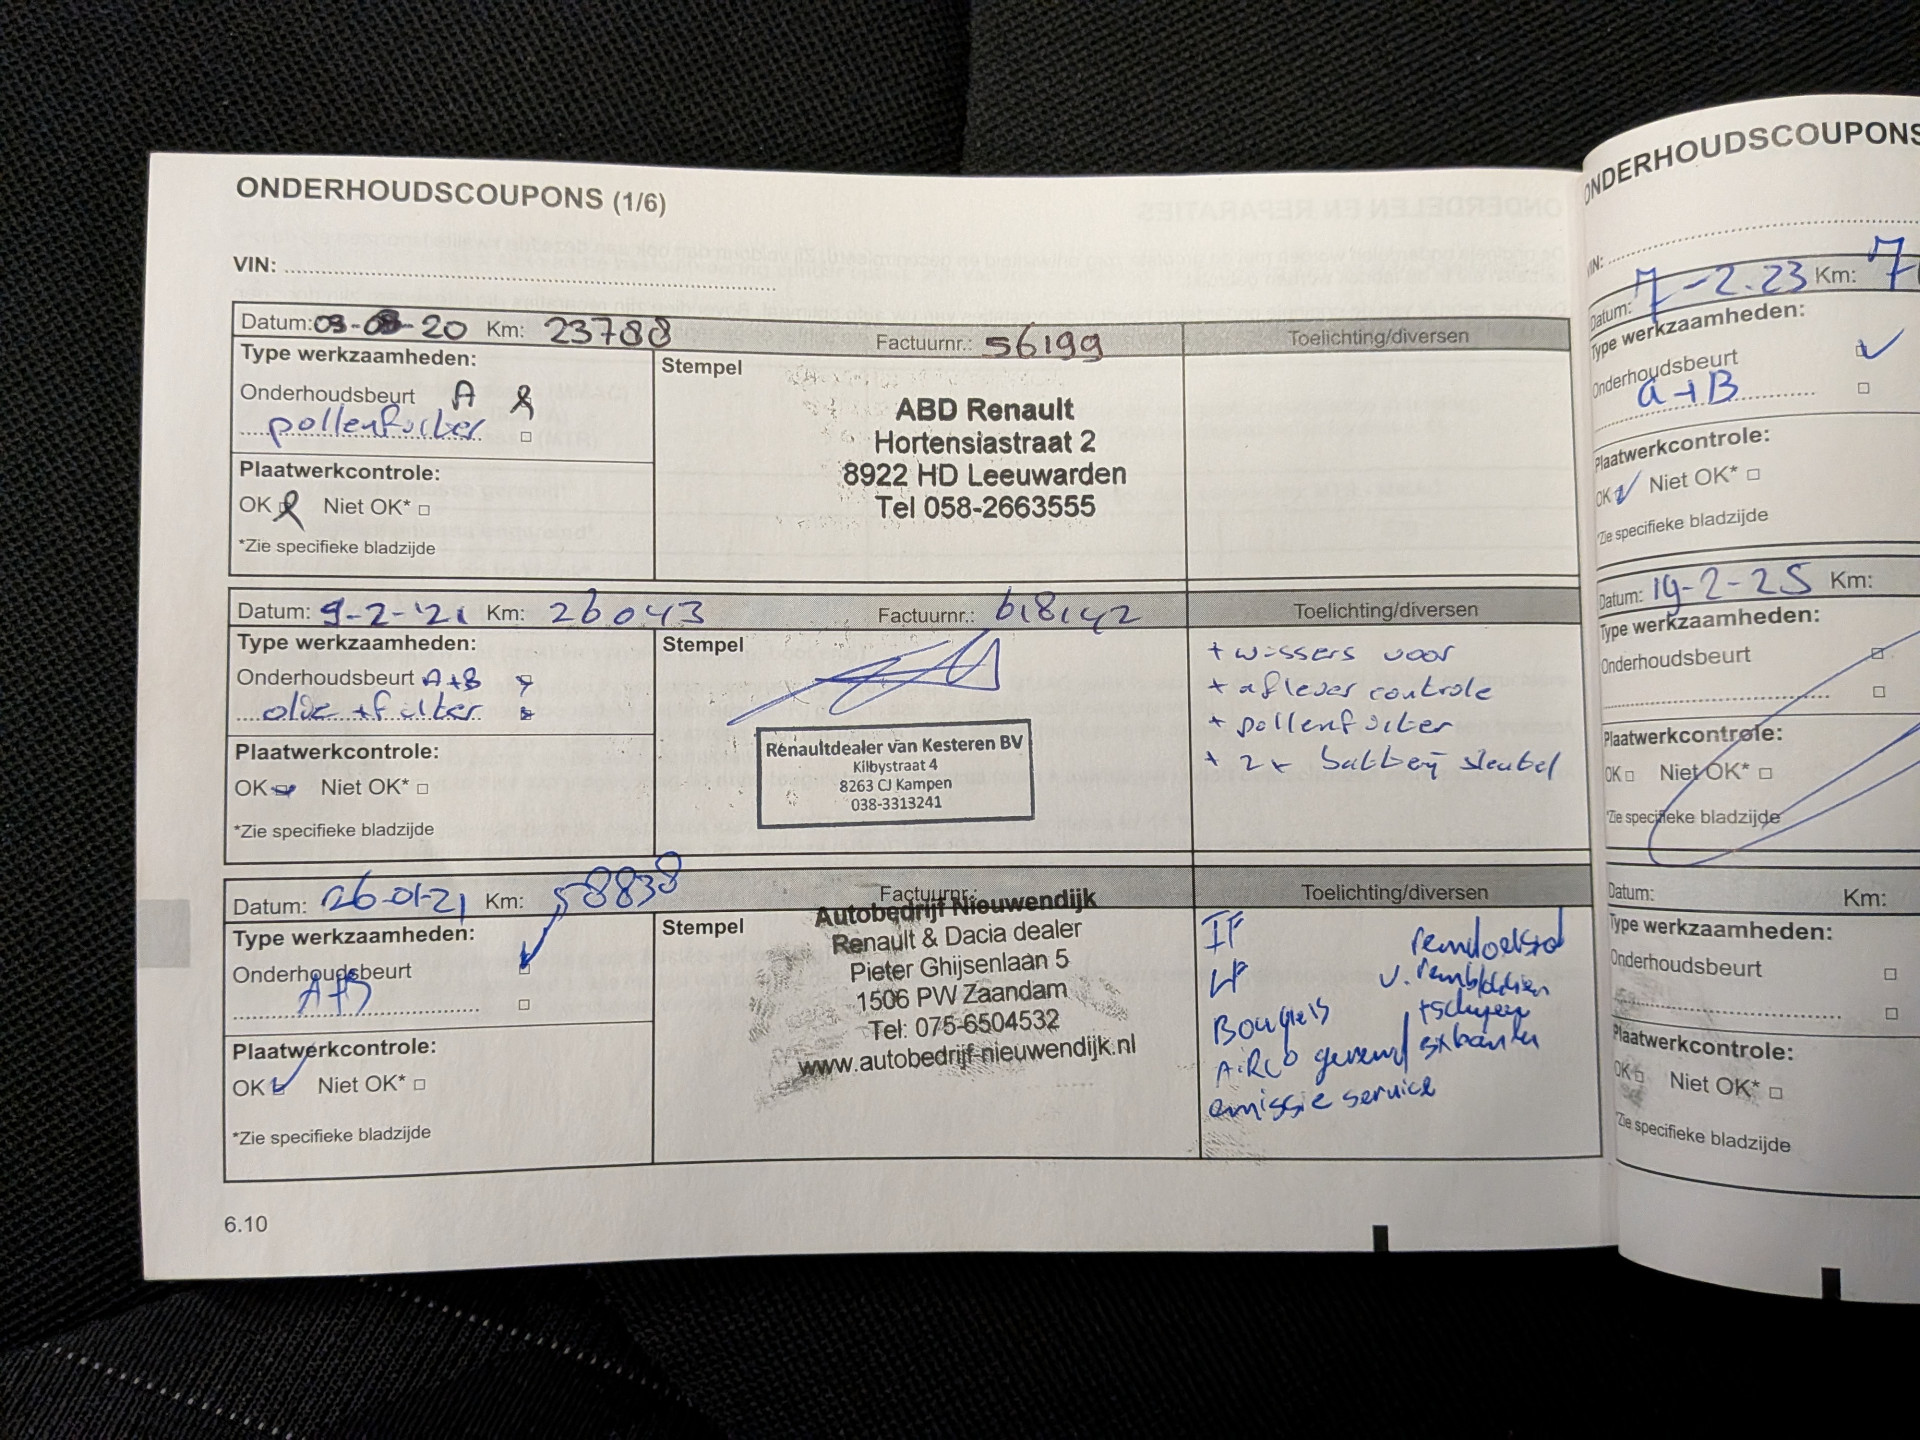 ONDERHOUDSCOUPONS (1/6)
VIN:
Datum: 03-08-20 Km: 23788 Factuurnr.: 56199 Toelichting/diversen
Type werkzaamheden:
Onderhoudsbeurt A
pollenfilter
Plaatwerkcontrole:
OK Niet OK*
*Zie specifieke bladzijde
Stempel
ABD Renault
Hortensiastraat 2
8922 HD Leeuwarden
Tel 058-2663555
Datum: 9-2-'21 Km: 26043 Factuurnr.: 618142 Toelichting/diversen
Type werkzaamheden:
Onderhoudsbeurt A+B
olie + filter
Plaatwerkcontrole:
OK Niet OK*
*Zie specifieke bladzijde
Stempel
Renaultdealer van Kesteren BV
Kilbystraat 4
8263 CJ Kampen
038-3313241
+ wissers voor
+ aflever controle
+ pollenfilter
+ 2x batterij sleutel
Datum: 26-01-21 Km: 58838 Factuurnr.: Toelichting/diversen
Type werkzaamheden:
Onderhoudsbeurt
A+B
Plaatwerkcontrole:
OK Niet OK*
*Zie specifieke bladzijde
Stempel
Autobedrijf Nieuwendijk
Renault & Dacia dealer
Pieter Ghijsenlaan 5
1506 PW Zaandam
Tel: 075-6504532
www.autobedrijf-nieuwendijk.nl
IF
LF
Bougies
Airco
emissie service
v. remblokken
6.10
ONDERHOUDSCOUPONS
VIN:
Datum: 7-2.23 Km: 7
Type werkzaamheden:
Onderhoudsbeurt
a+B
Plaatwerkcontrole:
OK Niet OK*
*Zie specifieke bladzijde
Datum: 19-2-25 Km:
Type werkzaamheden:
Onderhoudsbeurt
Plaatwerkcontrole:
OK Niet OK*
*Zie specifieke bladzijde
Datum: Km:
Type werkzaamheden:
Onderhoudsbeurt
Plaatwerkcontrole:
OK Niet OK*
*Zie specifieke bladzijde